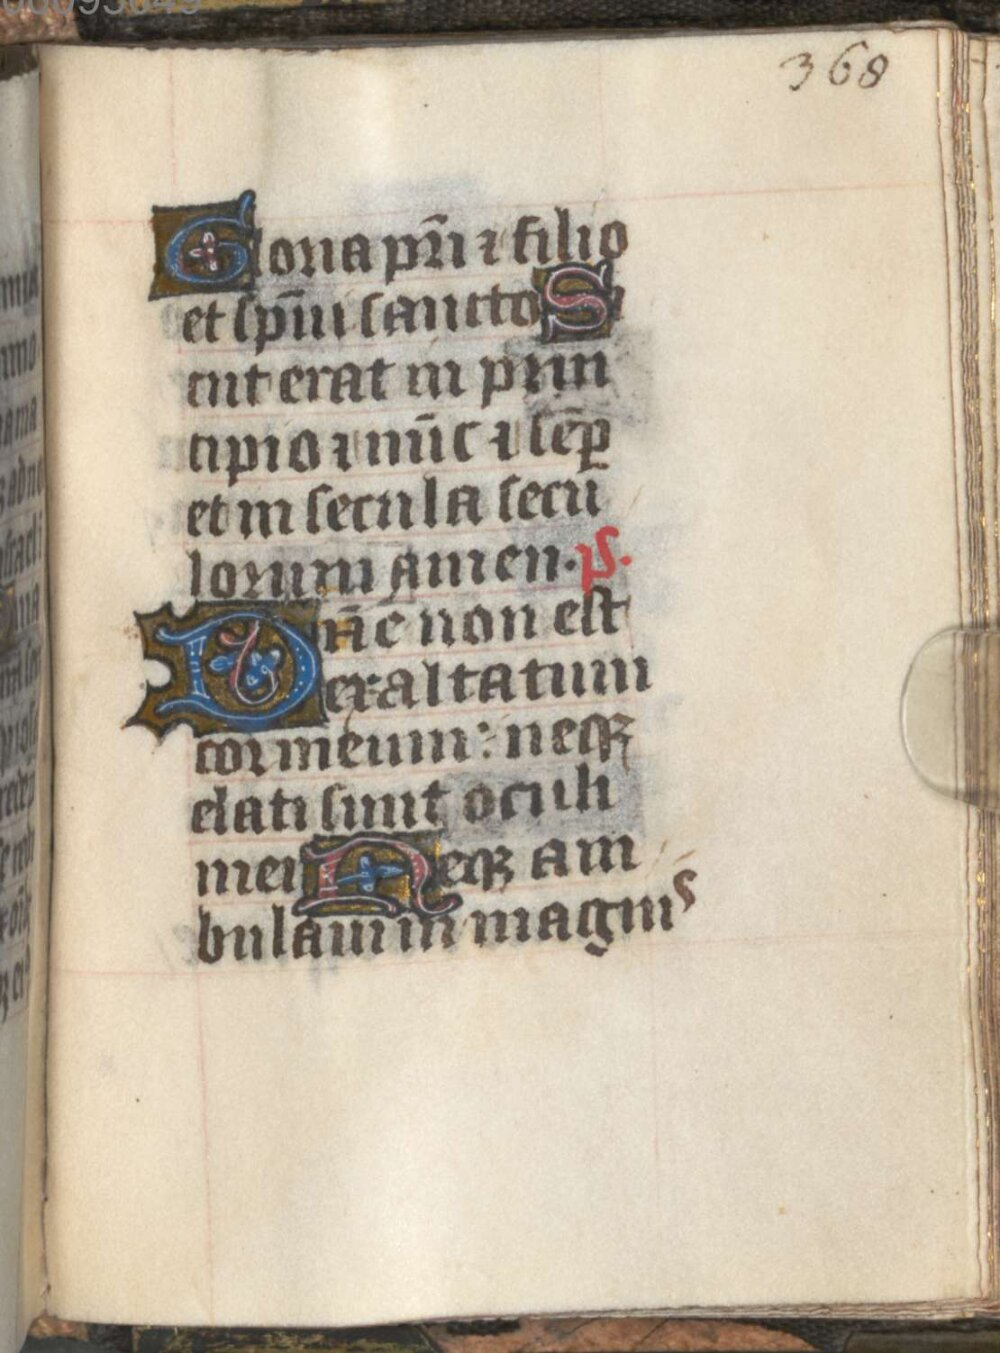 368
Gloria pr̄i ⁊ filio
et sp̄ui sancto S
icut erat in prin
cipio ⁊ nūc ⁊ sēꝑ
et in secula secu
lorum amen. ps.
Dn̄e non est
exaltatum
cor meum: neqꝫ
elati sunt oculi
mei Neqꝫ am
bulaui in magnis